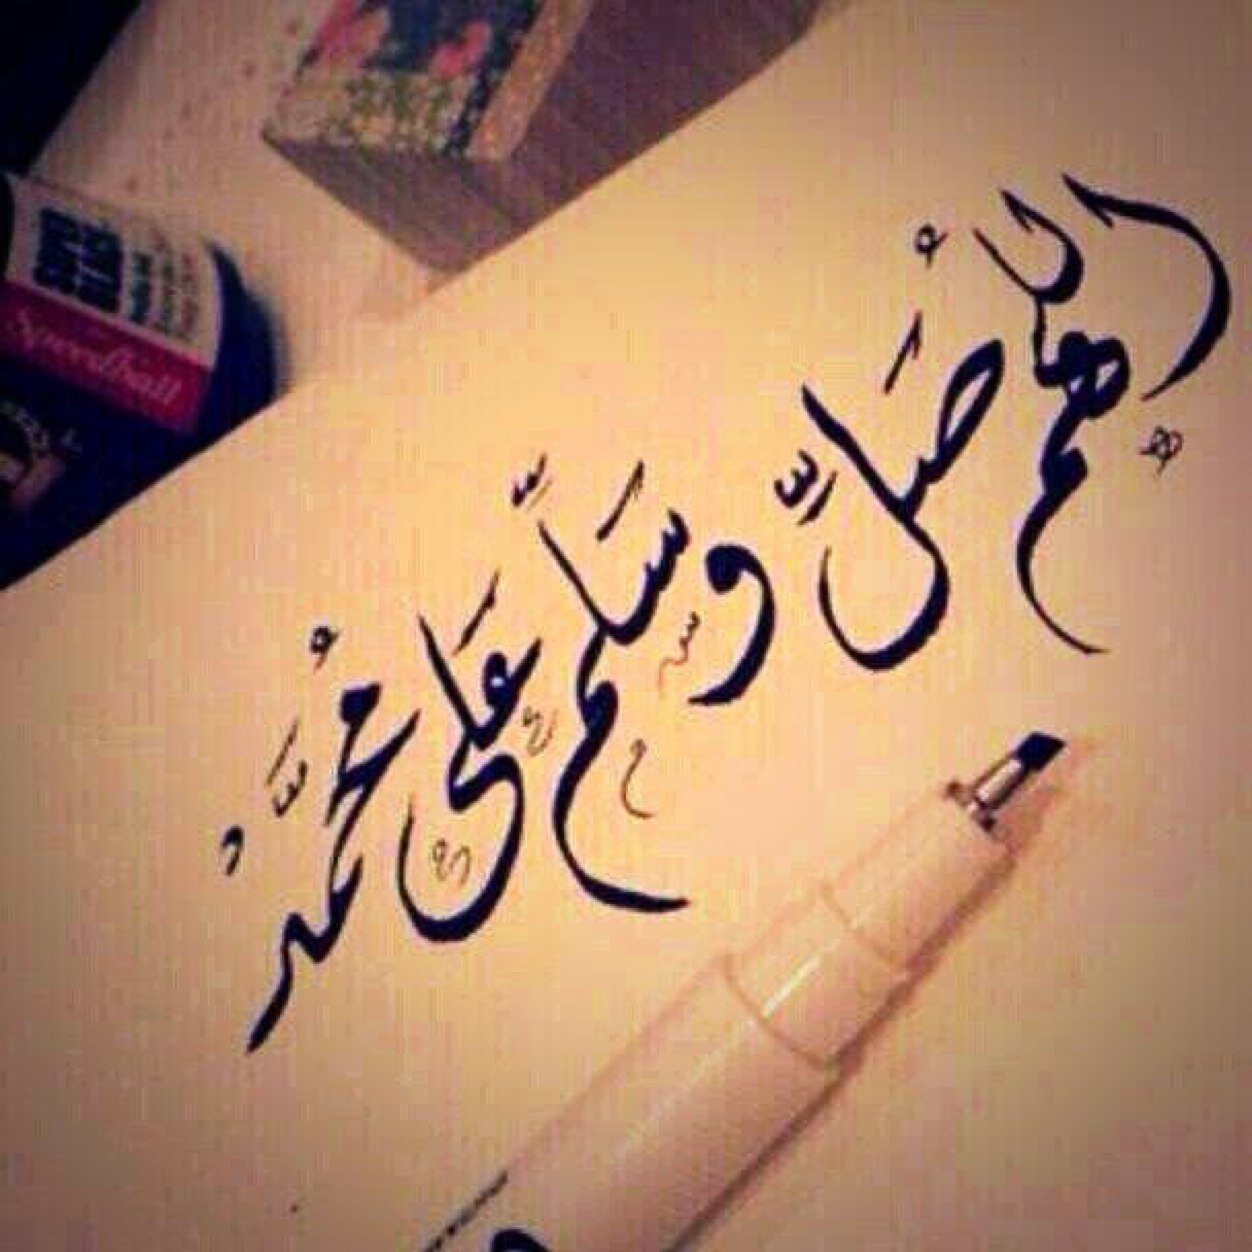 اللهم صل وسلم على محمد
Speedball